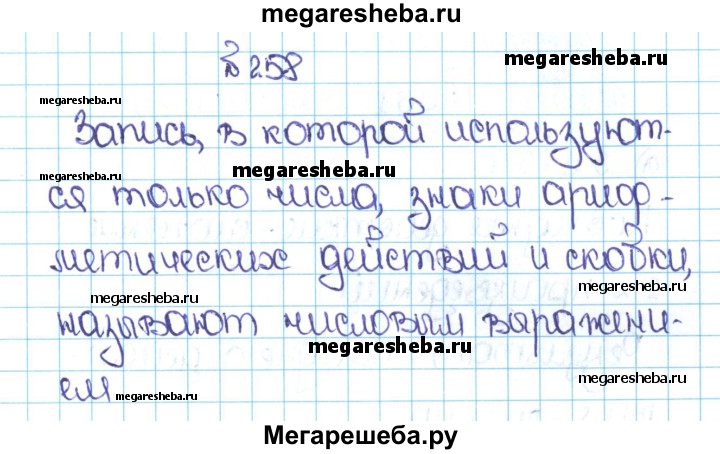 megaresheba.ru
№ 258
megaresheba.ru
megaresheba.ru
Запись, в которой используют-
megaresheba.ru
ся только числа, знаки ариф-
метических действий и скобки,
megaresheba.ru
называют числовым выражени-
megaresheba.ru
megaresheba.ru
ем
megaresheba.ru
Мегарешеба.ру